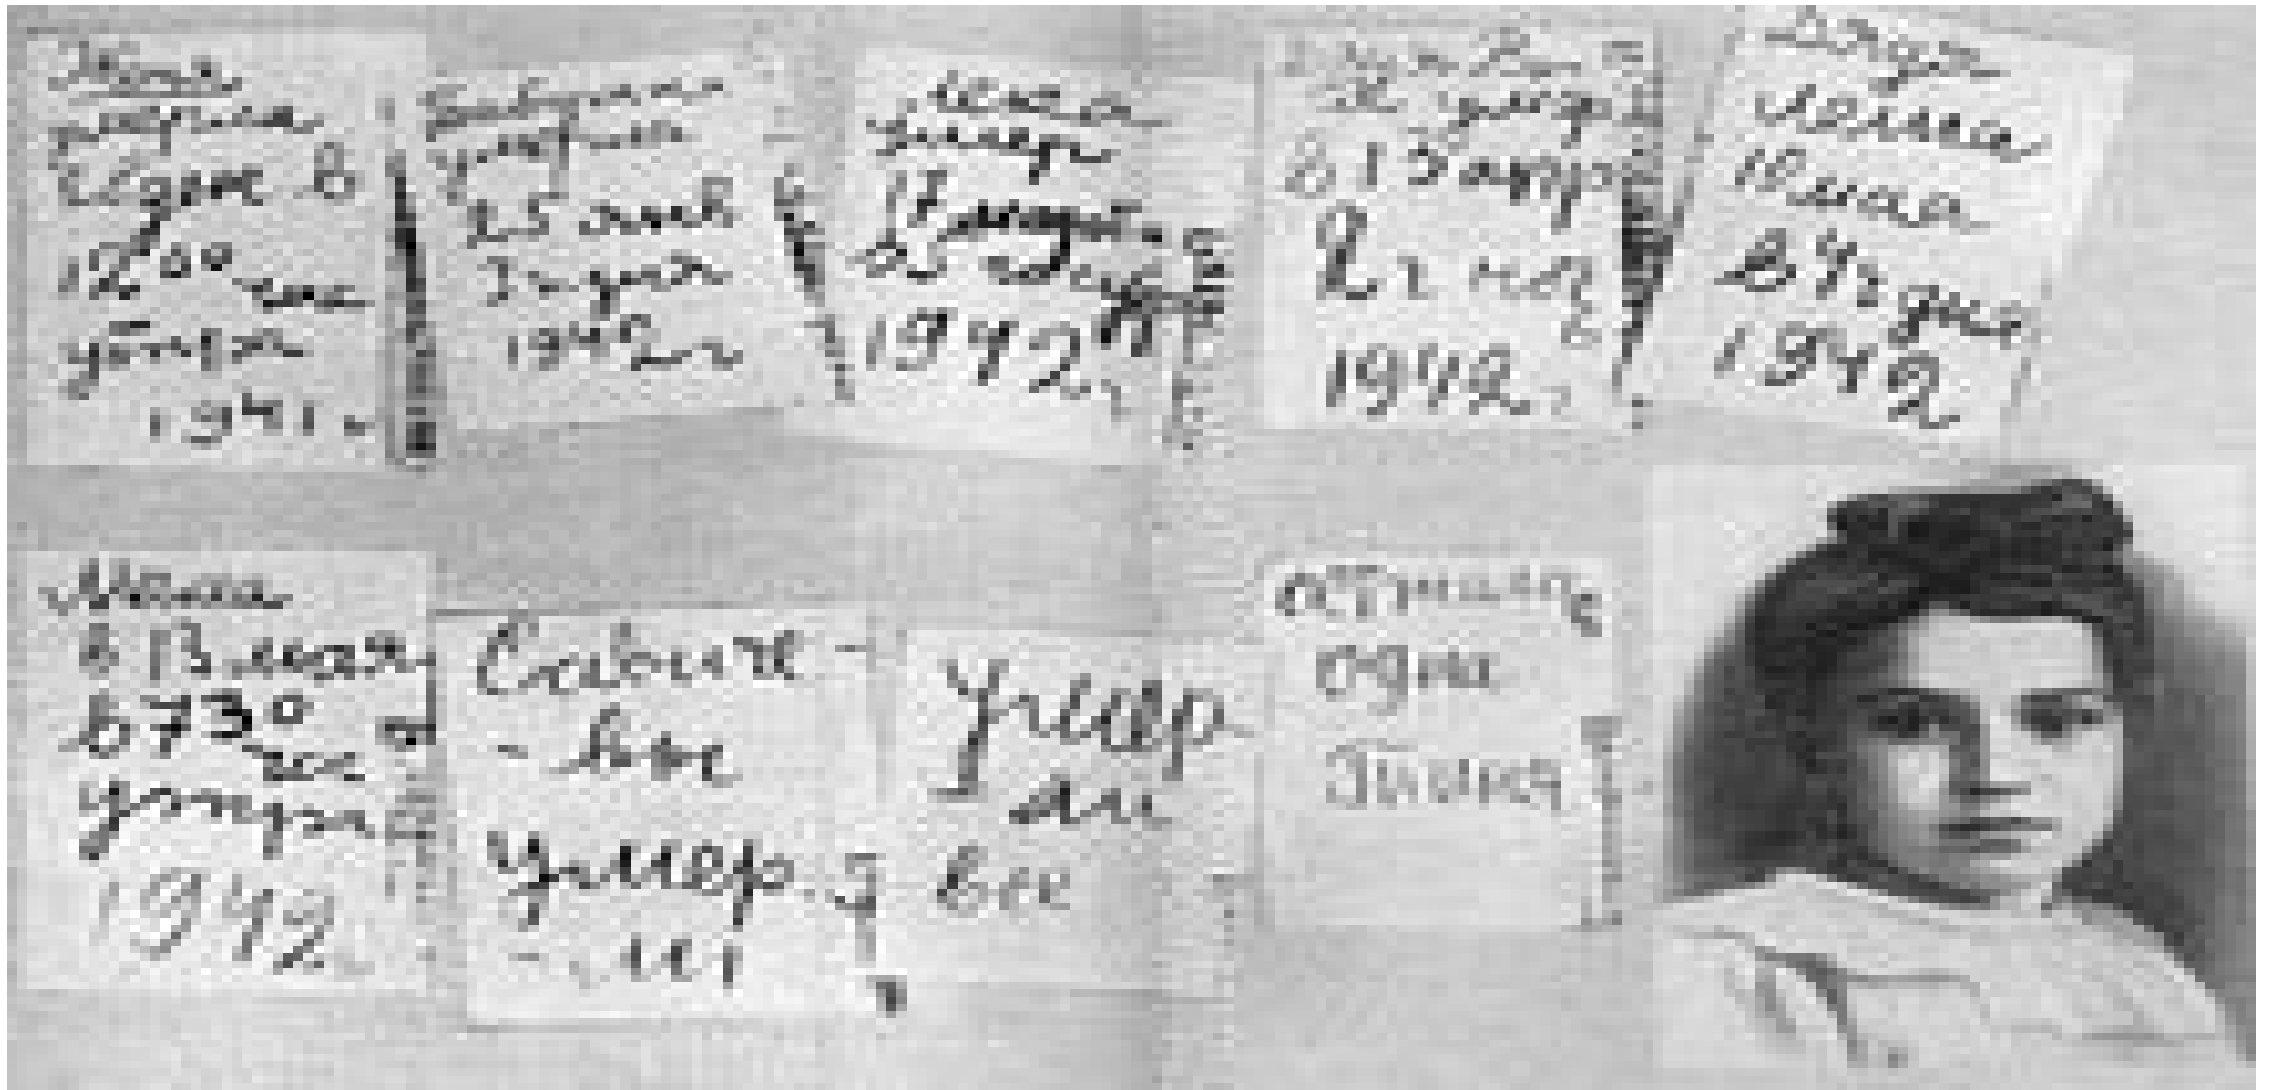 Женя
умерла
28 дек в
12 00 час
утра
1941 г
Бабушка
умерла
25 янв
3 ч дня
1942 г
Лека
умер
17 марта
в 5 час у
1942 г
Дядя Вася
умер
в 13 апр
2 ч ноч
1942 г
Дядя
Леша
10 мая
в 4 ч дня
1942
Мама
в 13 мая
в 7 30
час
утра
1942
Савиче
- вы
умер
- ли
Умер
ли
все
осталась
одна
Таня